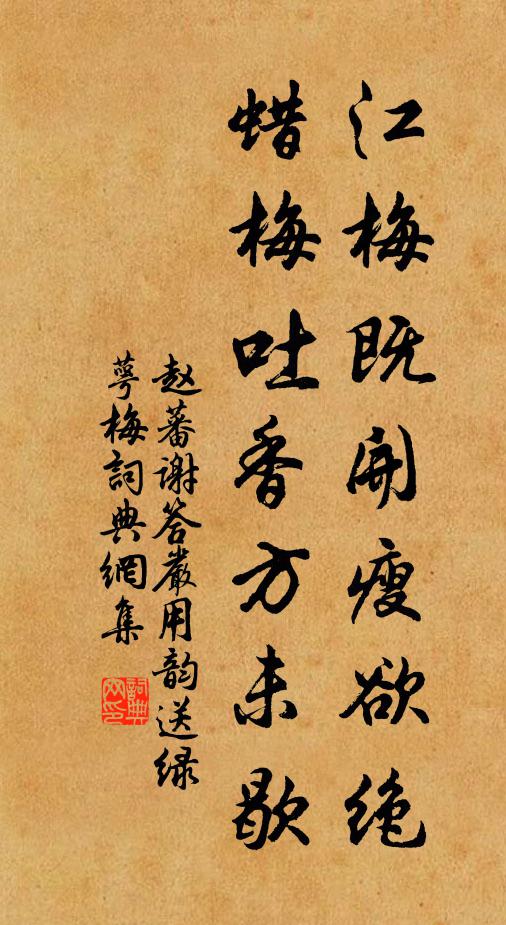 江梅既開瘦欲绝
蜡梅吐香方未歇
赵蕃谢答嚴用韵送绿
萼梅詞典網集
詞典
网印